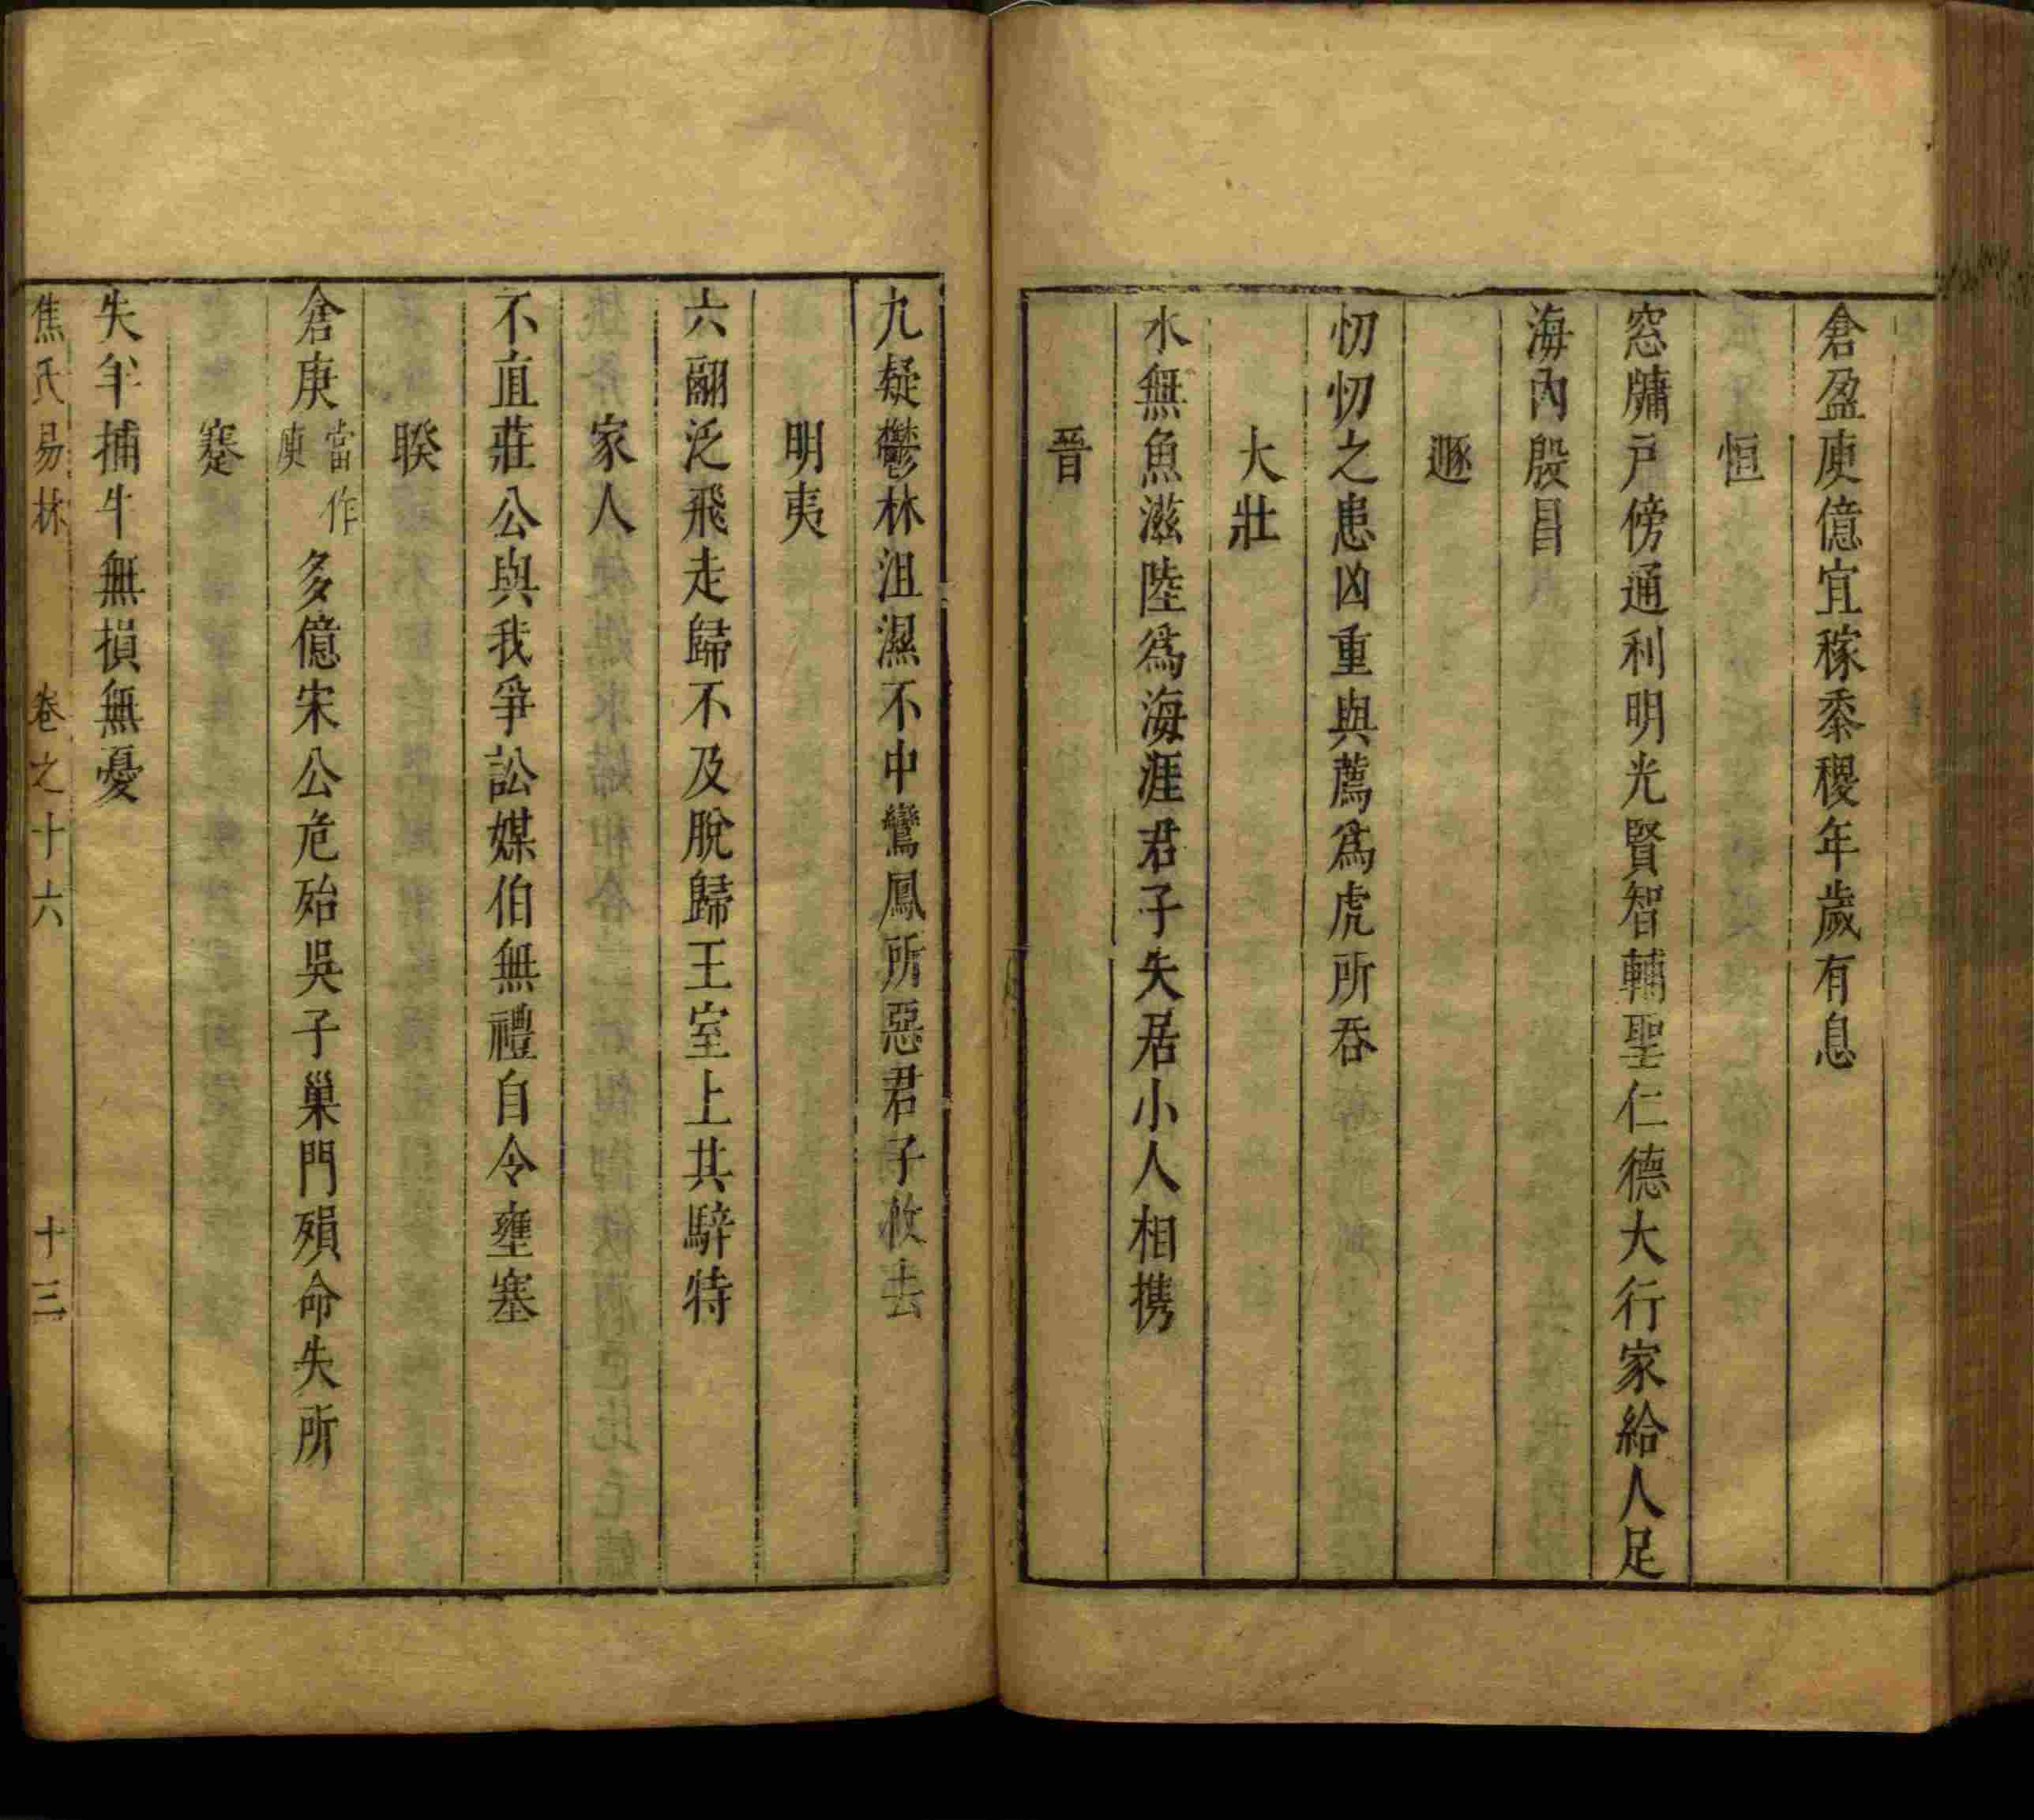 倉盈庾億宜稼黍稷年歲有息
恒
窓牗戶傍通利明光賢智輔聖仁德大行家給人足
海內殷昌
遯
忉忉之患凶重與薦爲虎所吞
大壯
水無魚滋陸爲海涯君子失居小人相携
晉
九疑鬱林沮濕不中鸞鳳所惡君子攸去
明夷
六翮泛飛走歸不及脫歸王室上共騂特
家人
不直莊公與我爭訟媒伯無禮自令壅塞
睽
倉庚當作庾多億宋公危殆吳子巢門殞命失所
蹇
失羊捕牛無損無憂
焦氏易林 卷之十六 十三